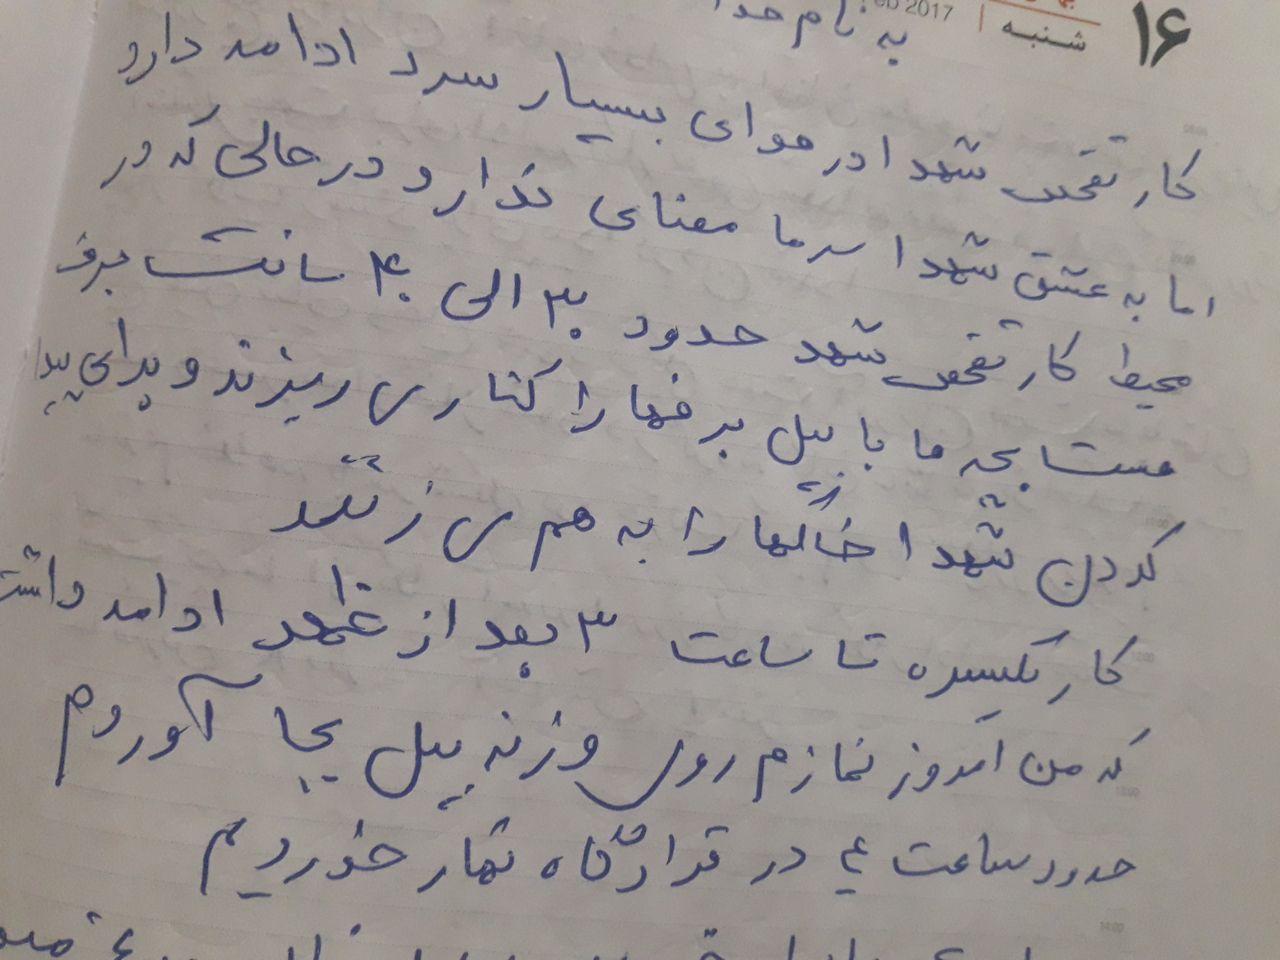 ۱۶
شنبه
2017
به نام خدا
کار تفحص شهدا در هوای بسیار سرد ادامه دارد
اما به عشق شهدا سرما معنای ندارد و در حالی که در
محیط کار تفحص شهد حدود ۳۰ الی ۴۰ سانت برف
هست بچه ها با بیل برفها را کناری ریزند و برای پیدا
کردن شهدا خاکها را به هم می زنند
کار یکسره تا ساعت ۳ بعد از ظهر ادامه داشت
که من امروز نمازم روی وزنه بیل بجا آوردم
حدود ساعت ۴ در قرارگاه نهار خوردیم